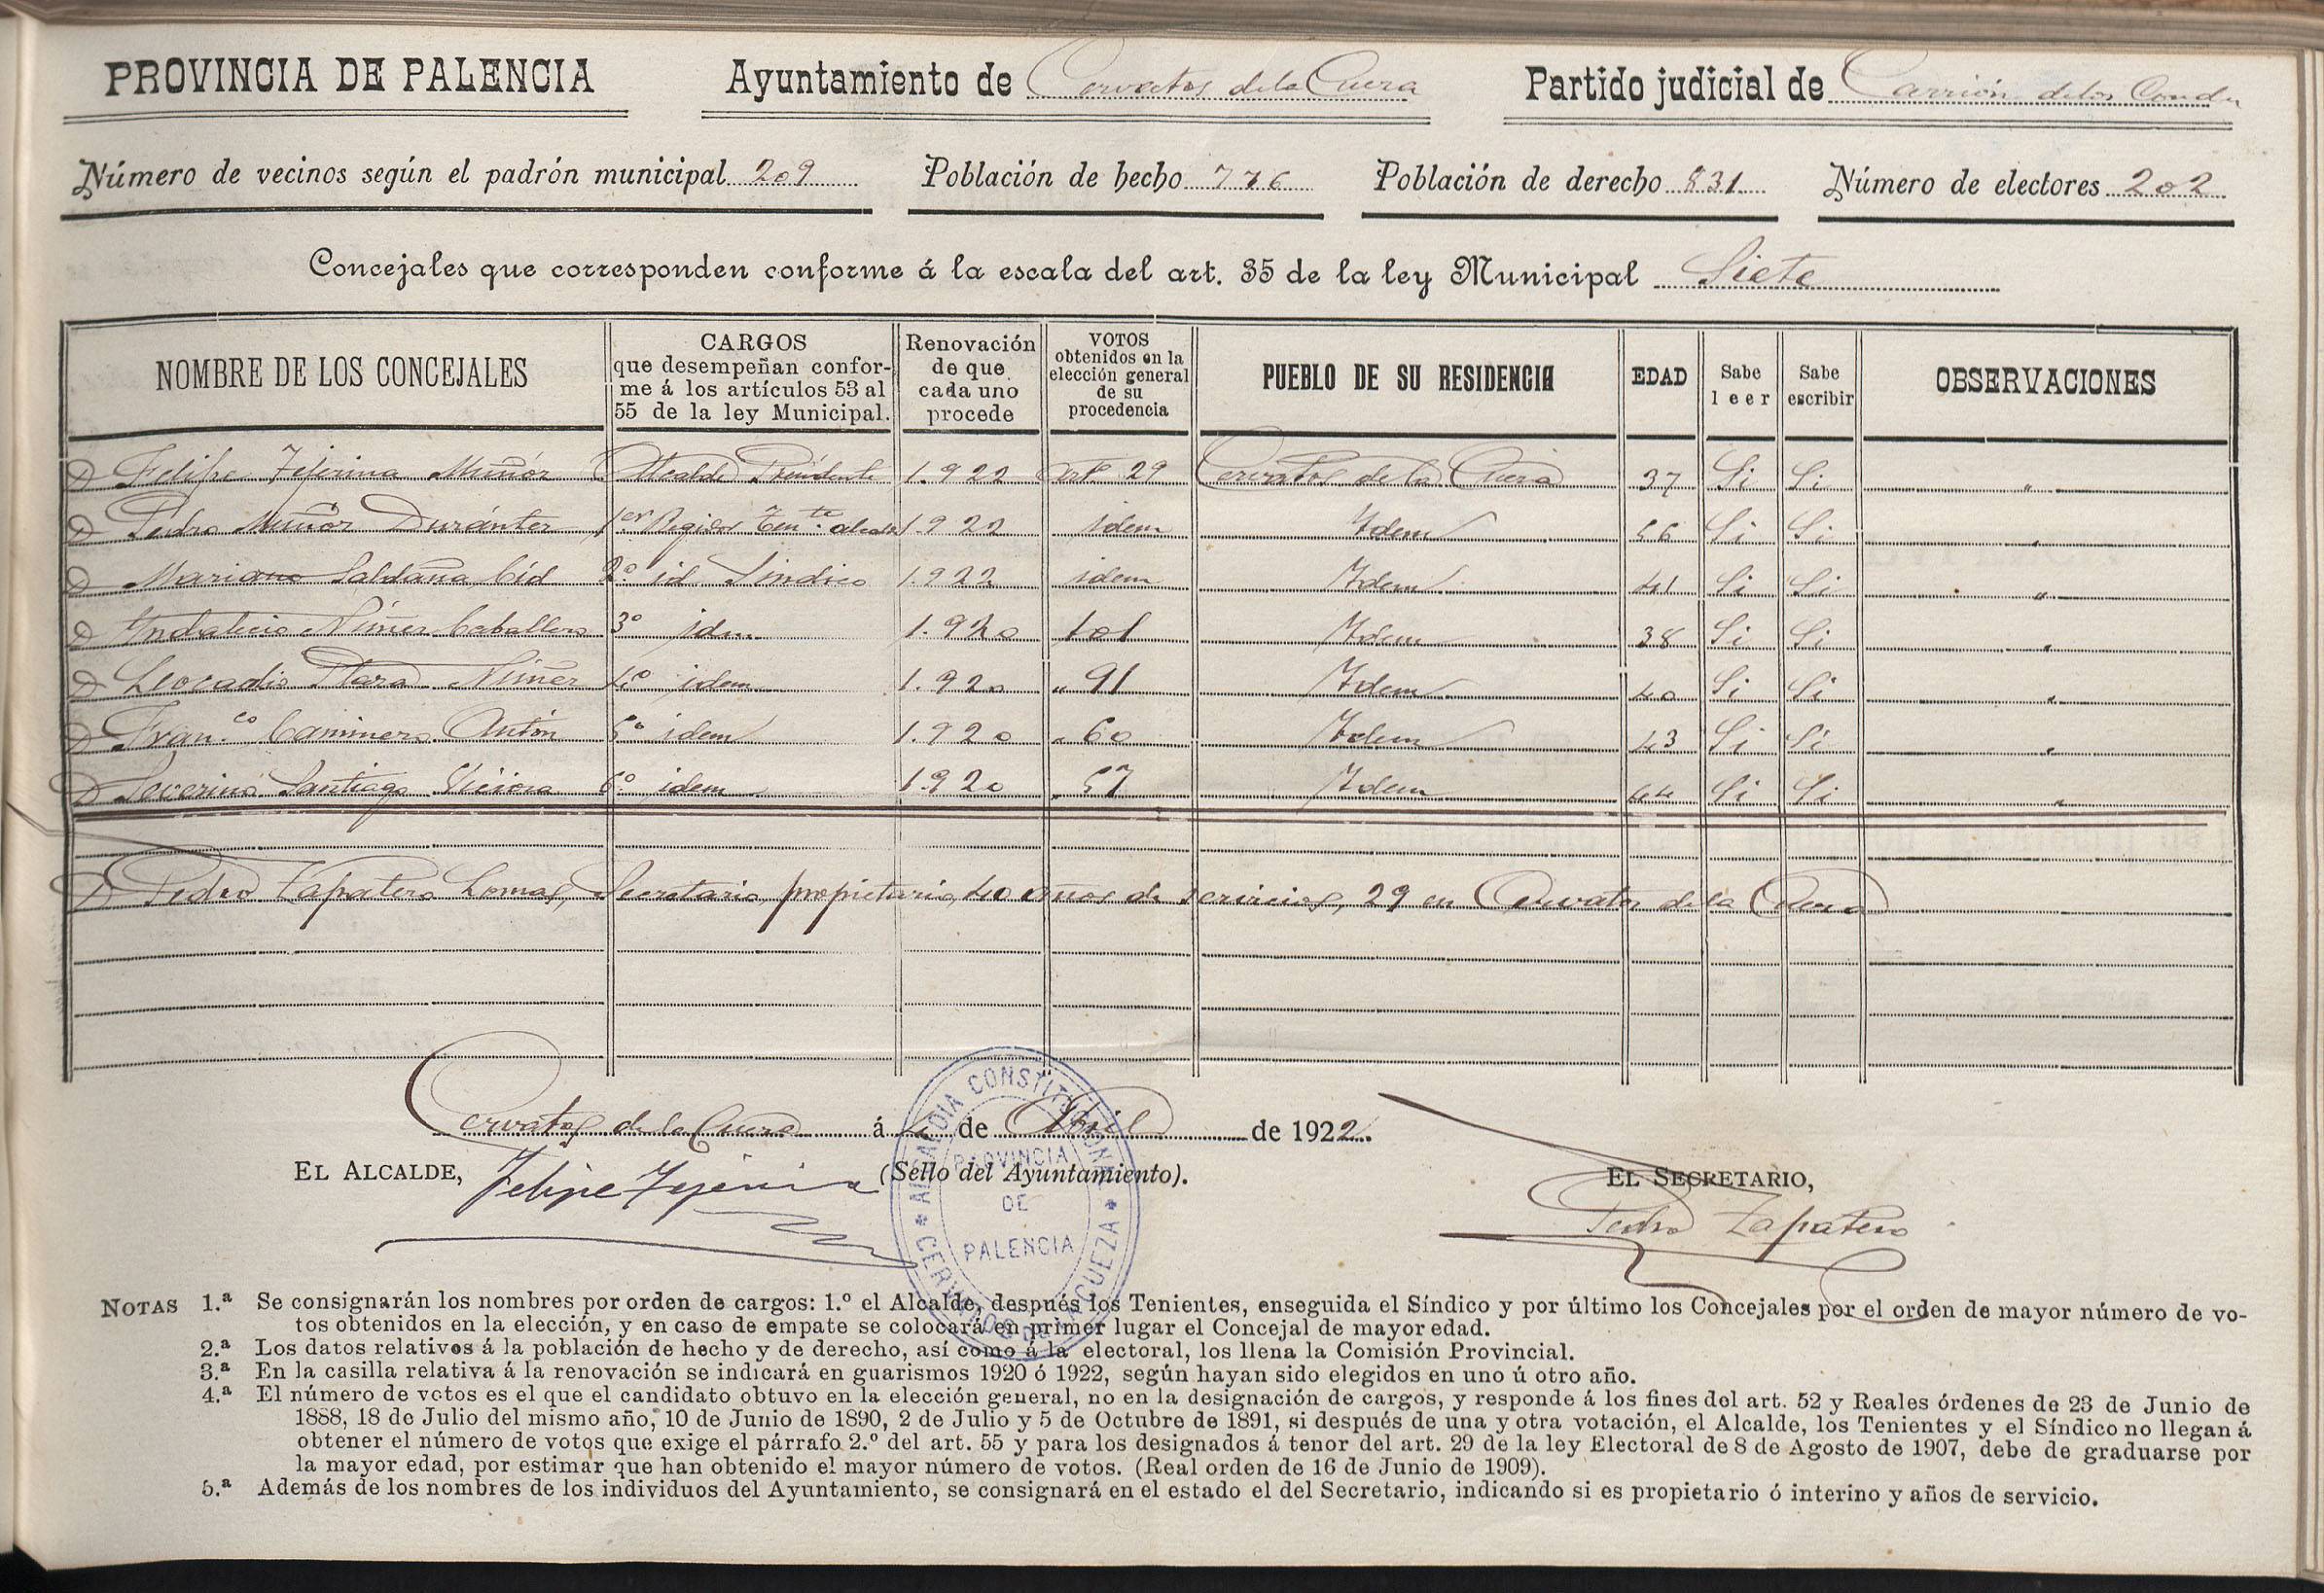 PROVINCIA DE PALENCIA Ayuntamiento de Cervatos de la Cueza Partido judicial de Carrión de los Condes
Número de vecinos según el padrón municipal 209 Población de hecho 776 Población de derecho 831 Número de electores 202
Concejales que corresponden conforme á la escala del art. 35 de la ley Municipal Siete
NOMBRE DE LOS CONCEJALES
CARGOS
que desempeñan confor-
me á los artículos 53 al
55 de la ley Municipal.
Renovación
de que
cada uno
procede
VOTOS
obtenidos en la
elección general
de su
procedencia
PUEBLO DE SU RESIDENCIA
EDAD
Sabe
leer
Sabe
escribir
OBSERVACIONES
D Felipe Tejerina Muñoz Alcalde Presidente 1.922 art. 29 Cervatos de la Cueza 37 Si Si "
D Pedro Muñoz Durántez 1er Regidor Tente alcalde 1.922 idem Idem 56 Si Si "
D Mariano Saldaña Cid 2º id Sindico 1.922 idem Idem 41 Si Si "
D Yndalecio Núñez Caballero 3º idem 1.920 101 Idem 38 Si Si "
D Leocadio Núñez 4º idem 1.920 " 91 Idem 40 Si Si "
D Franco Caminero Antón 5º idem 1.920 " 60 Idem 43 Si Si "
D Severino Santiago 6º idem 1.920 " 57 Idem 44 Si Si "
D Pedro Zapatero Lomas, Secretario propietario, 40 años de servicios, 29 en Cervatos de la Cueza
Cervatos de la Cueza á 4 de Abril de 1922.
EL ALCALDE, Felipe Tejerina (Sello del Ayuntamiento). EL SECRETARIO,
Pedro Zapatero
ALCALDIA CONSTITUCIONAL * CERVATOS DE LA CUEZA *
PROVINCIA
DE
PALENCIA
NOTAS 1.ª Se consignarán los nombres por orden de cargos: 1.º el Alcalde, después los Tenientes, enseguida el Síndico y por último los Concejales por el orden de mayor número de vo-
tos obtenidos en la elección, y en caso de empate se colocará en primer lugar el Concejal de mayor edad.
2.ª Los datos relativos á la población de hecho y de derecho, así como á la electoral, los llena la Comisión Provincial.
3.ª En la casilla relativa á la renovación se indicará en guarismos 1920 ó 1922, según hayan sido elegidos en uno ú otro año.
4.ª El número de votos es el que el candidato obtuvo en la elección general, no en la designación de cargos, y responde á los fines del art. 52 y Reales órdenes de 23 de Junio de
1888, 18 de Julio del mismo año, 10 de Junio de 1890, 2 de Julio y 5 de Octubre de 1891, si después de una y otra votación, el Alcalde, los Tenientes y el Síndico no llegan á
obtener el número de votos que exige el párrafo 2.º del art. 55 y para los designados á tenor del art. 29 de la ley Electoral de 8 de Agosto de 1907, debe de graduarse por
la mayor edad, por estimar que han obtenido el mayor número de votos. (Real orden de 16 de Junio de 1909).
5.ª Además de los nombres de los individuos del Ayuntamiento, se consignará en el estado el del Secretario, indicando si es propietario ó interino y años de servicio.